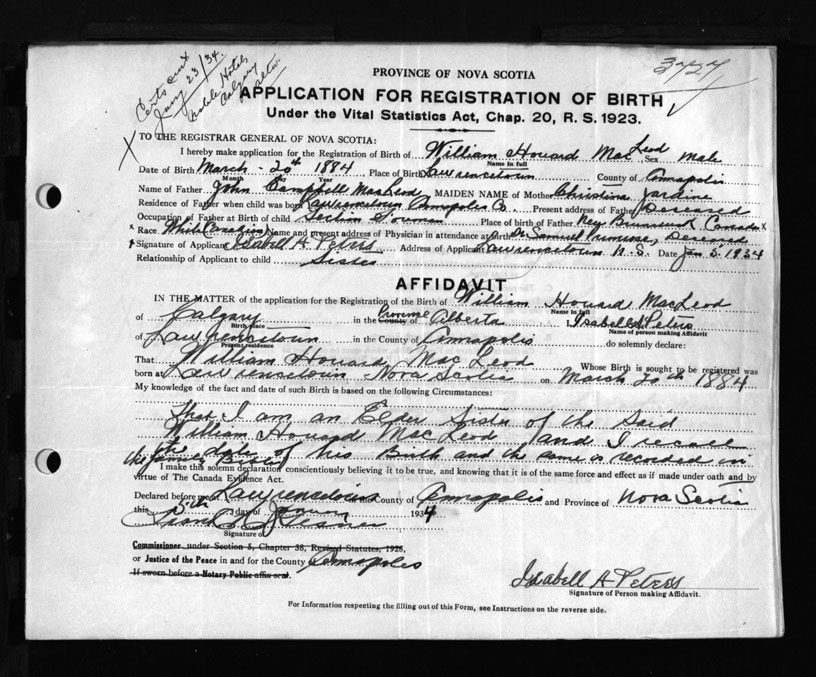 Certs sent
Jany 23/34.
Noble Hotel
Calgary
Alta.
3727
PROVINCE OF NOVA SCOTIA
APPLICATION FOR REGISTRATION OF BIRTH
Under the Vital Statistics Act, Chap. 20, R. S. 1923.
TO THE REGISTRAR GENERAL OF NOVA SCOTIA:
I hereby make application for the Registration of Birth of William Howard MacLeod Sex male
Name in full
Date of Birth March - 20th 1884 Place of Birth Lawrencetown County of Annapolis
Month Day Year
Name of Father John Campbell MacLeod MAIDEN NAME of Mother Christina Jardine
Residence of Father when child was born Lawrencetown Annapolis Co. Present address of Father Deceased
Occupation of Father at Birth of child Section Foreman Place of birth of Father New Brunswick Canada
x Race White Canadian Name and present address of Physician in attendance at birth Dr Samuel Primrose, Deceased x
Signature of Applicant Isabell A Peters Address of Applicant Lawrencetown N.S. Date Jan 5. 1934
Relationship of Applicant to child Sister
AFFIDAVIT
IN THE MATTER of the application for the Registration of the Birth of William Howard MacLeod
Name in full
of Calgary in the County Province of Alberta I Isabell A Peters
Birth place Name of person making Affidavit
of Lawrencetown in the County of Annapolis do solemnly declare:
Present residence
That William Howard MacLeod Whose Birth is sought to be registered was
born at Lawrencetown Nova Scotia on March 20th 1884
My knowledge of the fact and date of such Birth is based on the following Circumstances:
That I am an Elder Sister of the said
William Howard MacLeod and I recall
the date of his Birth and the same is recorded in
the family
I make this solemn declaration conscientiously believing it to be true, and knowing that it is of the same force and effect as if made under oath and by
virtue of The Canada Evidence Act.
Declared before me Lawrencetown in the County of Annapolis and Province of Nova Scotia
this 5th day of January 1934
Signature of
Commissioner under Section 5, Chapter 38, Revised Statutes, 1923,
or Justice of the Peace in and for the County Annapolis
If sworn before a Notary Public affix seal.
Isabell A Peters
Signature of Person making Affidavit.
For Information respecting the filling out of this Form, see Instructions on the reverse side.